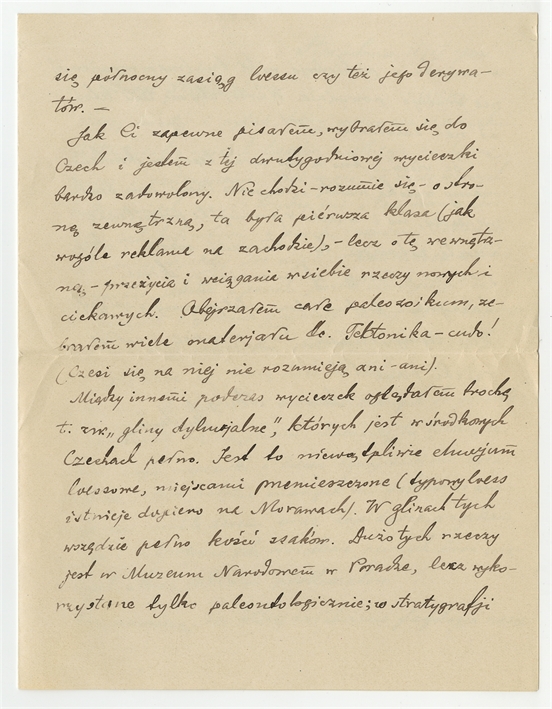 się północny zasiąg loessu czy też jego derywa-
tów. —
Jak Ci zapewne pisałem, wybrałem się do
Czech i jestem z tej dwutygodniowej wycieczki
bardzo zadowolony. Nie chodzi - rozumie się - o stro-
nę zewnętrzną, ta była piérwsza klasa (jak
wogóle reklama na zachodzie), - lecz o tę wewnętrz-
ną - przeżycia i wciągania w siebie rzeczy nowych i
ciekawych. Obejrzałem całe paleozoikum, ze-
brałem wiele materjału etc. Tektonika - cudo!
(Czesi się na niej nie rozumieją ani - ani).
Między innemi podczas wycieczek oglądałem trochę
t. zw. „gliny dyluwjalne", których jest w środkowych
Czechach pełno. Jest to niewątpliwie eluwjum
loessowe, miejscami przemieszczone (typowy loess
istnieje dopiero na Morawach). W glinach tych
wszędzie pełno kości ssaków. Dużo tych rzeczy
jest w Muzeum Narodowem w Pradze, lecz wyko-
rzystane tylko paleontologicznie; w stratygrafji